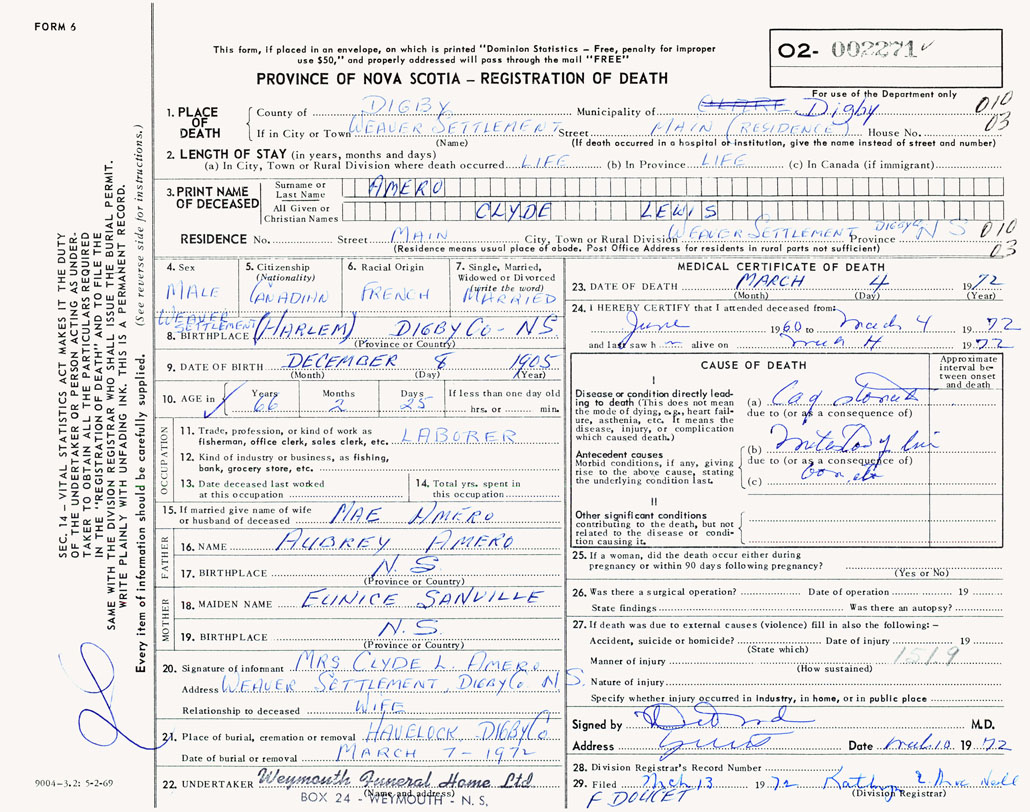 FORM 6
This form, if placed in an envelope, on which is printed "Dominion Statistics – Free, penalty for improper
use $50," and properly addressed will pass through the mail "FREE"
PROVINCE OF NOVA SCOTIA – REGISTRATION OF DEATH
02- 002271
For use of the Department only
010
03
1. PLACE OF DEATH
County of DIGBY Municipality of CLARE Digby
If in City or Town WEAVER SETTLEMENT Street MAIN (RESIDENCE) House No.
(Name) (If death occurred in a hospital or institution, give the name instead of street and number)
2. LENGTH OF STAY (in years, months and days)
(a) In City, Town or Rural Division where death occurred LIFE (b) In Province LIFE (c) In Canada (if immigrant)
3. PRINT NAME OF DECEASED
Surname or Last Name AMERO
All Given or Christian Names CLYDE LEWIS
RESIDENCE No. Street MAIN City, Town or Rural Division WEAVER SETTLEMENT DIGBY Co Province N S
010
03
(Residence means usual place of abode. Post Office Address for residents in rural parts not sufficient)
4. Sex
MALE
5. Citizenship
(Nationality)
CANADIAN
6. Racial Origin
FRENCH
7. Single, Married,
Widowed or Divorced
(write the word)
MARRIED
WEAVER
SETTLEMENT
8. BIRTHPLACE (HARLEM) DIGBY Co - NS
(Province or Country)
9. DATE OF BIRTH DECEMBER 8 1905
(Month) (Day) (Year)
10. AGE in
Years 66
Months 2
Days 25
If less than one day old
hrs. or min.
OCCUPATION
11. Trade, profession or kind of work as
fisherman, office clerk, sales clerk, etc. LABORER
12. Kind of industry or business, as fishing,
bank, grocery store, etc.
13. Date deceased last worked
at this occupation
14. Total yrs. spent in
this occupation
15. If married give name of wife
or husband of deceased MAE AMERO
FATHER
16. NAME AUBREY AMERO
17. BIRTHPLACE N.S.
(Province or Country)
MOTHER
18. MAIDEN NAME EUNICE SANVILLE
19. BIRTHPLACE N.S.
(Province or Country)
20. Signature of informant MRS CLYDE L. AMERO
Address WEAVER SETTLEMENT, DIGBY Co N S.
Relationship to deceased WIFE
21. Place of burial, cremation or removal HAVELOCK DIGBY Co
Date of burial or removal MARCH 7 - 1972
22. UNDERTAKER Weymouth Funeral Home Ltd
(Name and address)
BOX 24 - WEYMOUTH - N.S.
MEDICAL CERTIFICATE OF DEATH
23. DATE OF DEATH MARCH 4 1972
(Month) (Day) (Year)
24. I HEREBY CERTIFY that I attended deceased from:
June 1960 to March 4 1972
and last saw h m alive on March 4 1972
CAUSE OF DEATH
Approximate
interval be-
tween onset
and death
I
Disease or condition directly lead-
ing to death (This does not mean
the mode of dying, e.g., heart fail-
ure, asthenia, etc. It means the
disease, injury, or complication
which caused death.)
(a) Ca
due to (or as a consequence of)
Antecedent causes
Morbid conditions, if any, giving
rise to the above cause, stating
the underlying condition last.
(b)
due to (or as a consequence of)
(c)
II
Other significant conditions
contributing to the death, but not
related to the disease or condi-
tion causing it.
25. If a woman, did the death occur either during
pregnancy or within 90 days following pregnancy?
(Yes or No)
26. Was there a surgical operation? Date of operation 19
State findings Was there an autopsy?
27. If death was due to external causes (violence) fill in also the following:–
Accident, suicide or homicide? Date of injury 19
(State which)
1519
Manner of injury
(How sustained)
Nature of injury
Specify whether injury occurred in industry, in home, or in public place
Signed by M.D.
Address Date Mch 10 1972
28. Division Registrar's Record Number
29. Filed Mch 13 1972
(Division Registrar)
F DOUCET
SEC. 14 – VITAL STATISTICS ACT MAKES IT THE DUTY
OF THE UNDERTAKER OR PERSON ACTING AS UNDER-
TAKER TO OBTAIN ALL THE PARTICULARS REQUIRED
IN THE "REGISTRATION OF DEATH" AND TO FILE THE
SAME WITH THE DIVISION REGISTRAR WHO SHALL ISSUE THE BURIAL PERMIT.
WRITE PLAINLY WITH UNFADING INK. THIS IS A PERMANENT RECORD.
Every item of information should be carefully supplied. (See reverse side for instructions.)
9004–3.2: 5-2-69